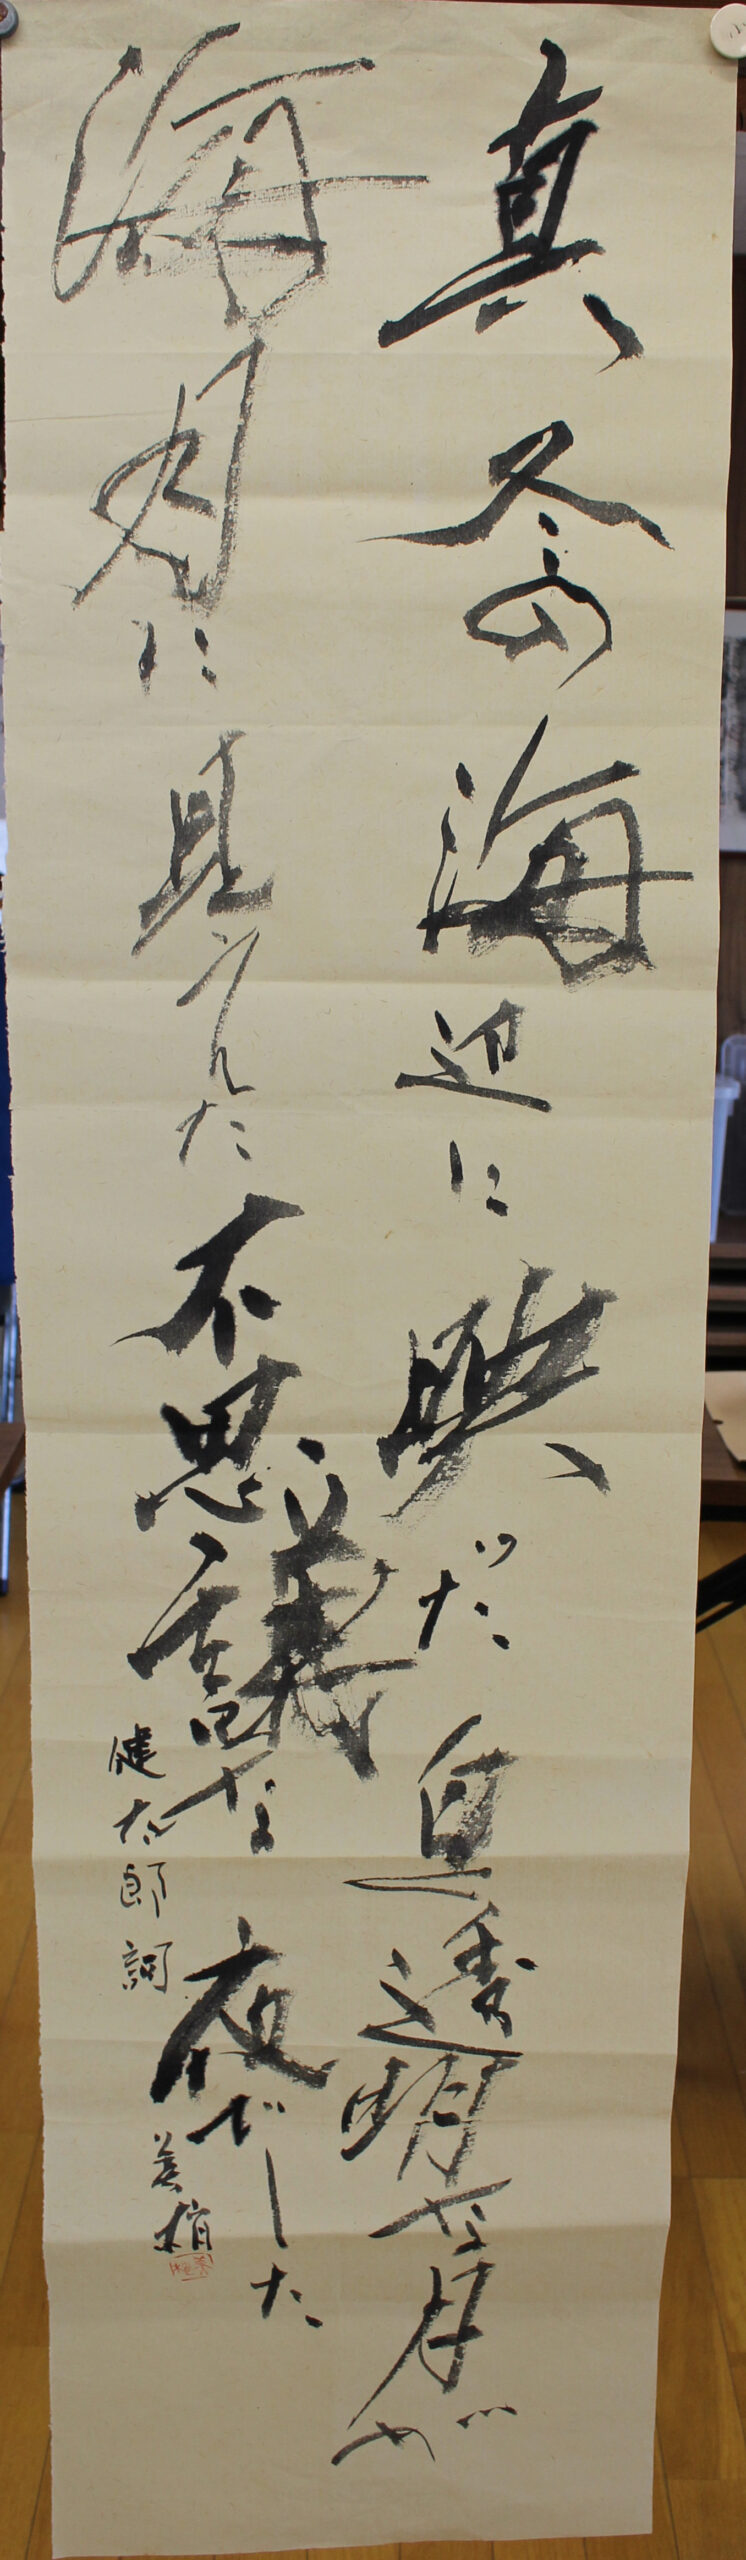 真冬の海辺に映った透明な月が
海月に見えた不思議な夜でした
健太郎詞
美梢